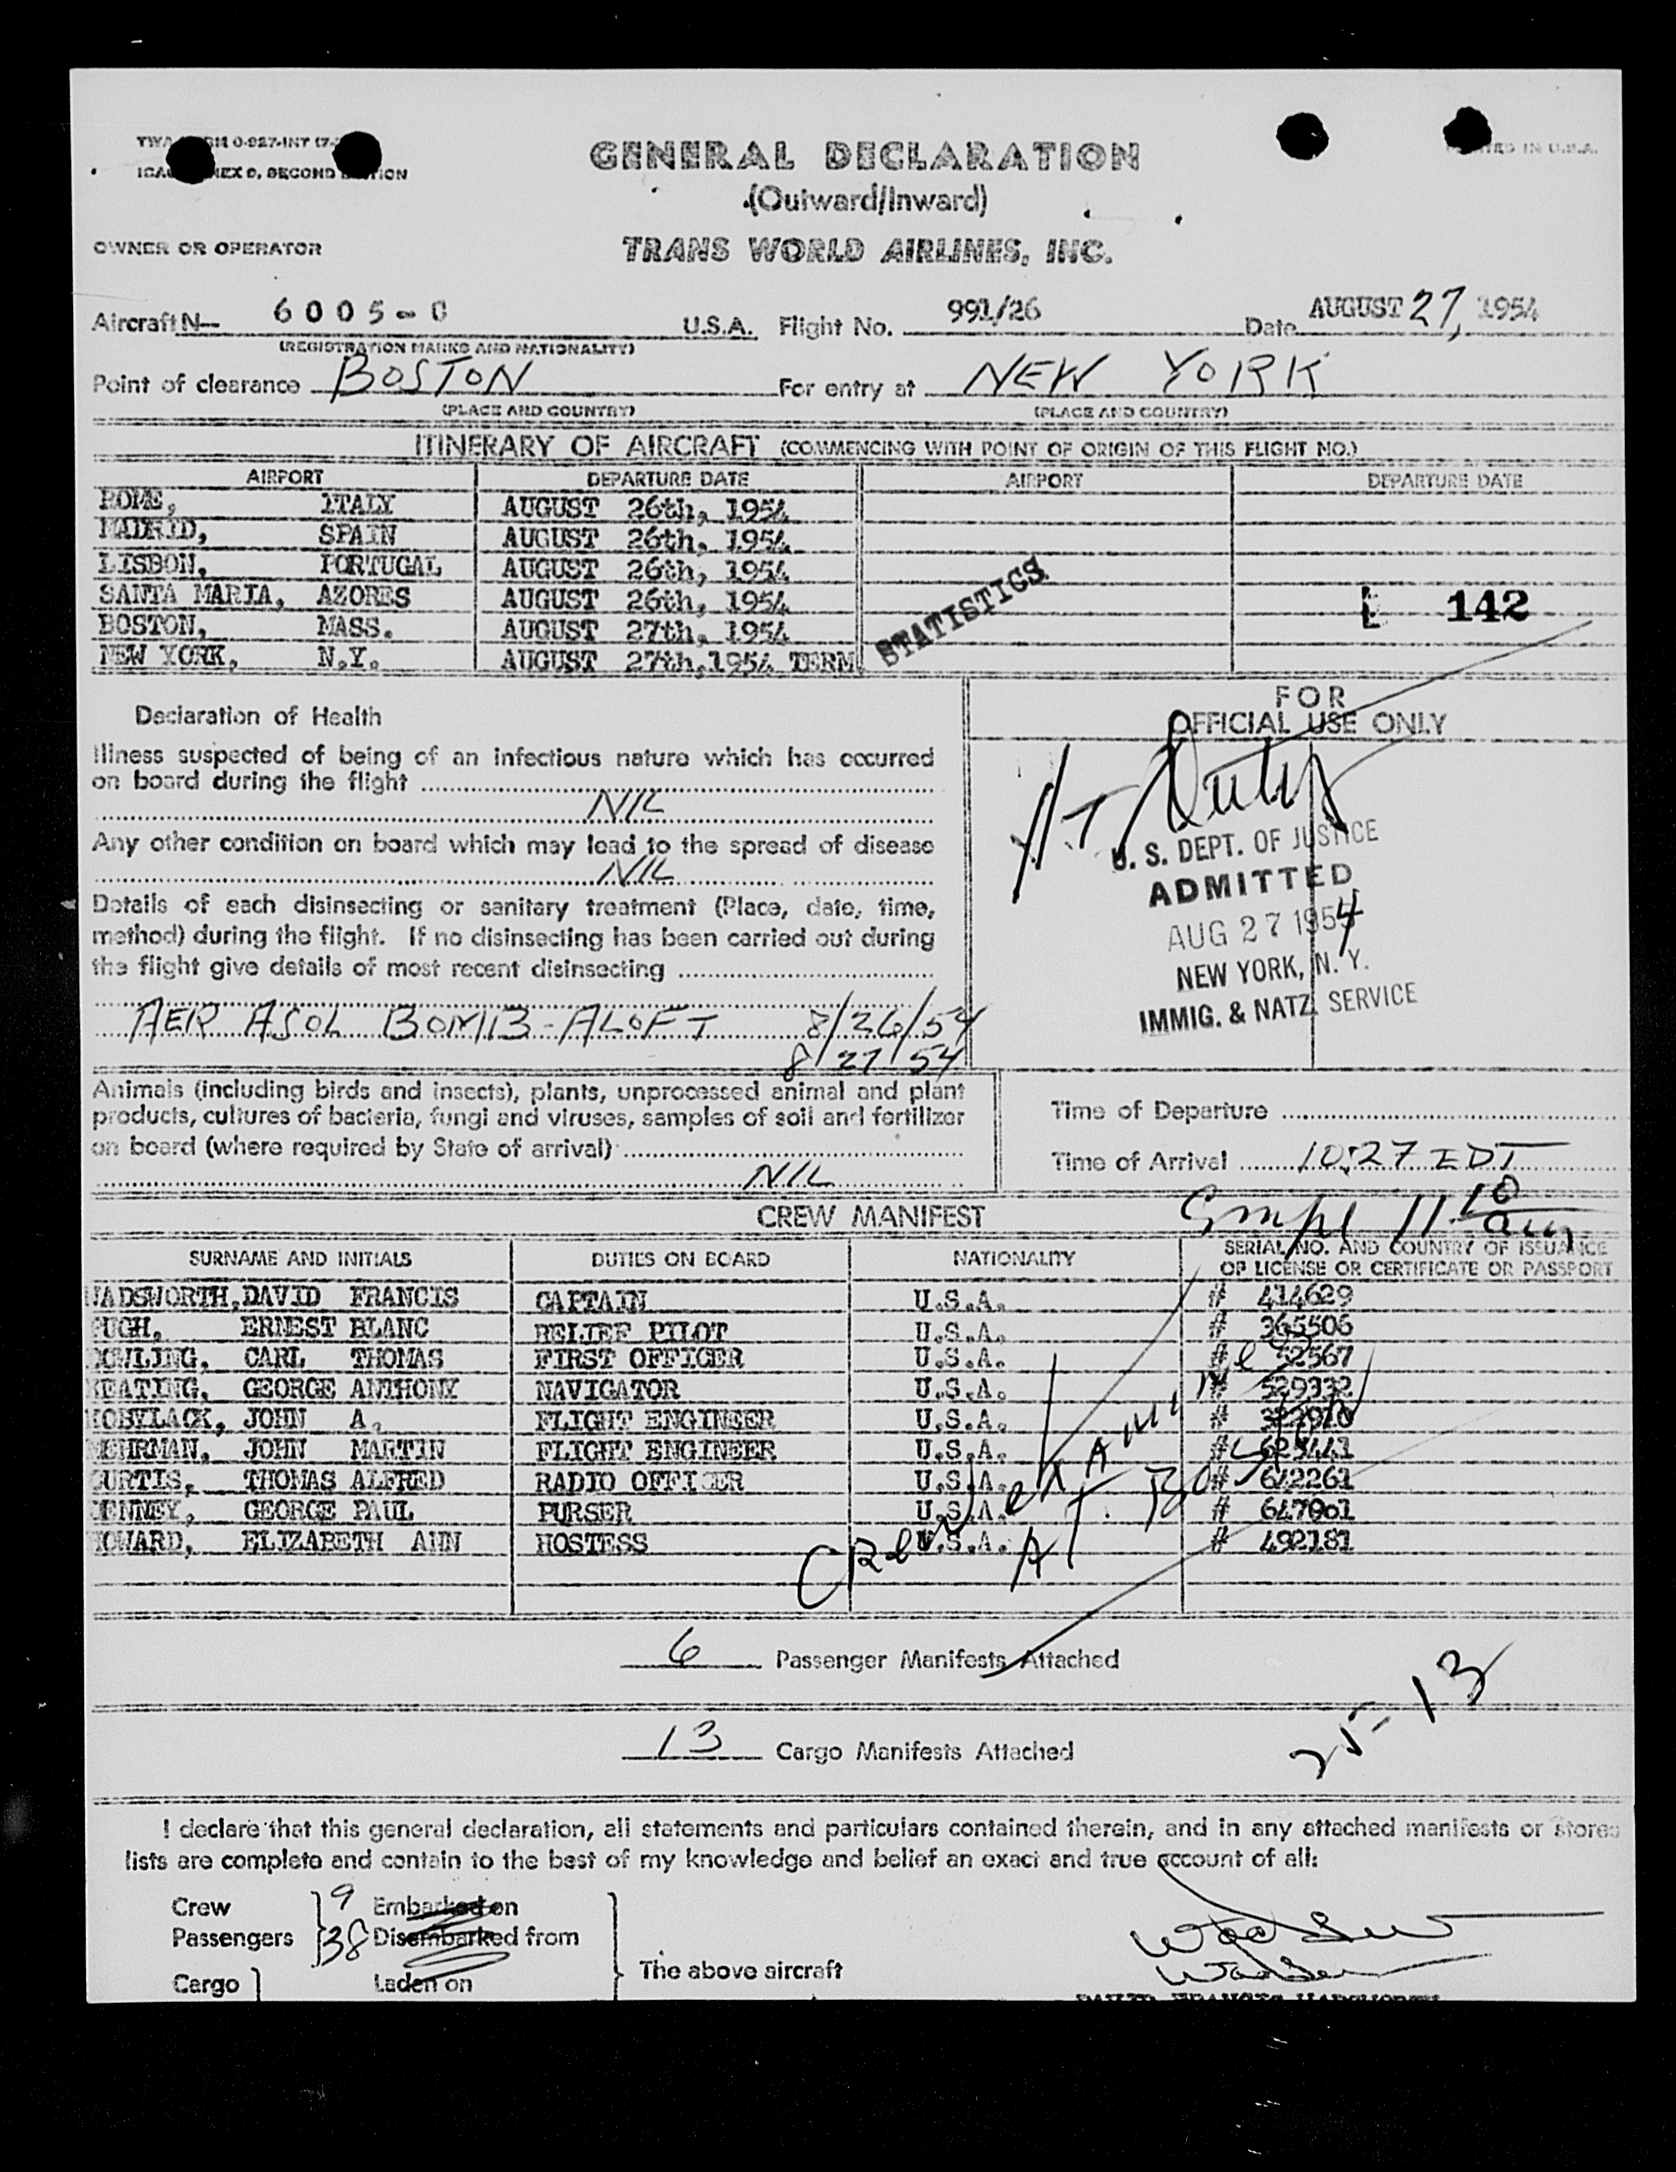 GENERAL DECLARATION
(Outward/Inward)
OWNER OR OPERATOR TRANS WORLD AIRLINES, INC.
Aircraft N— 6005-C U.S.A. Flight No. 991/26 Date AUGUST 27, 1954
(REGISTRATION MARKS AND NATIONALITY)
Point of clearance BOSTON For entry at NEW YORK
(PLACE AND COUNTRY) (PLACE AND COUNTRY)
ITINERARY OF AIRCRAFT (COMMENCING WITH POINT OF ORIGIN OF THIS FLIGHT NO.)
AIRPORT DEPARTURE DATE AIRPORT DEPARTURE DATE
ROME, ITALY AUGUST 26th, 1954
MADRID, SPAIN AUGUST 26th, 1954
LISBON, PORTUGAL AUGUST 26th, 1954
SANTA MARIA, AZORES AUGUST 26th, 1954
BOSTON, MASS. AUGUST 27th, 1954
NEW YORK, N.Y. AUGUST 27th, 1954 TERM
STATISTICS
142
Declaration of Health
Illness suspected of being of an infectious nature which has occurred
on board during the flight
NIL
Any other condition on board which may lead to the spread of disease
NIL
Details of each disinsecting or sanitary treatment (Place, date, time,
method) during the flight. If no disinsecting has been carried out during
the flight give details of most recent disinsecting
AER ASOL BOMB - ALOFT 8/26/54
8/27/54
FOR
OFFICIAL USE ONLY
Duty
U. S. DEPT. OF JUSTICE
ADMITTED
AUG 27 1954
NEW YORK, N. Y.
IMMIG. & NATZ. SERVICE
Animals (including birds and insects), plants, unprocessed animal and plant
products, cultures of bacteria, fungi and viruses, samples of soil and fertilizer
on board (where required by State of arrival)
NIL
Time of Departure
Time of Arrival 10:27 EDT
CREW MANIFEST
SURNAME AND INITIALS DUTIES ON BOARD NATIONALITY SERIAL NO. AND COUNTRY OF ISSUANCE
OF LICENSE OR CERTIFICATE OR PASSPORT
WADSWORTH, DAVID FRANCIS CAPTAIN U.S.A. # 414629
PUGH, ERNEST BLANC RELIEF PILOT U.S.A. # 365506
CARL THOMAS FIRST OFFICER U.S.A. # 52567
KEATING, GEORGE ANTHONY NAVIGATOR U.S.A. # 529332
JOHN A. FLIGHT ENGINEER U.S.A. #
JOHN MARTIN FLIGHT ENGINEER U.S.A. #
CURTIS, THOMAS ALFRED RADIO OFFICER U.S.A. # 642261
GEORGE PAUL PURSER U.S.A. # 647001
HOWARD, ELIZABETH ANN HOSTESS U.S.A. # 492181
Crew examined
AT. Boston
6 Passenger Manifests Attached
13 Cargo Manifests Attached
25-13
I declare that this general declaration, all statements and particulars contained therein, and in any attached manifests or stores
lists are complete and contain to the best of my knowledge and belief an exact and true account of all:
Crew 9 Embarked on
Passengers 38 Disembarked from
Cargo Laden on
The above aircraft